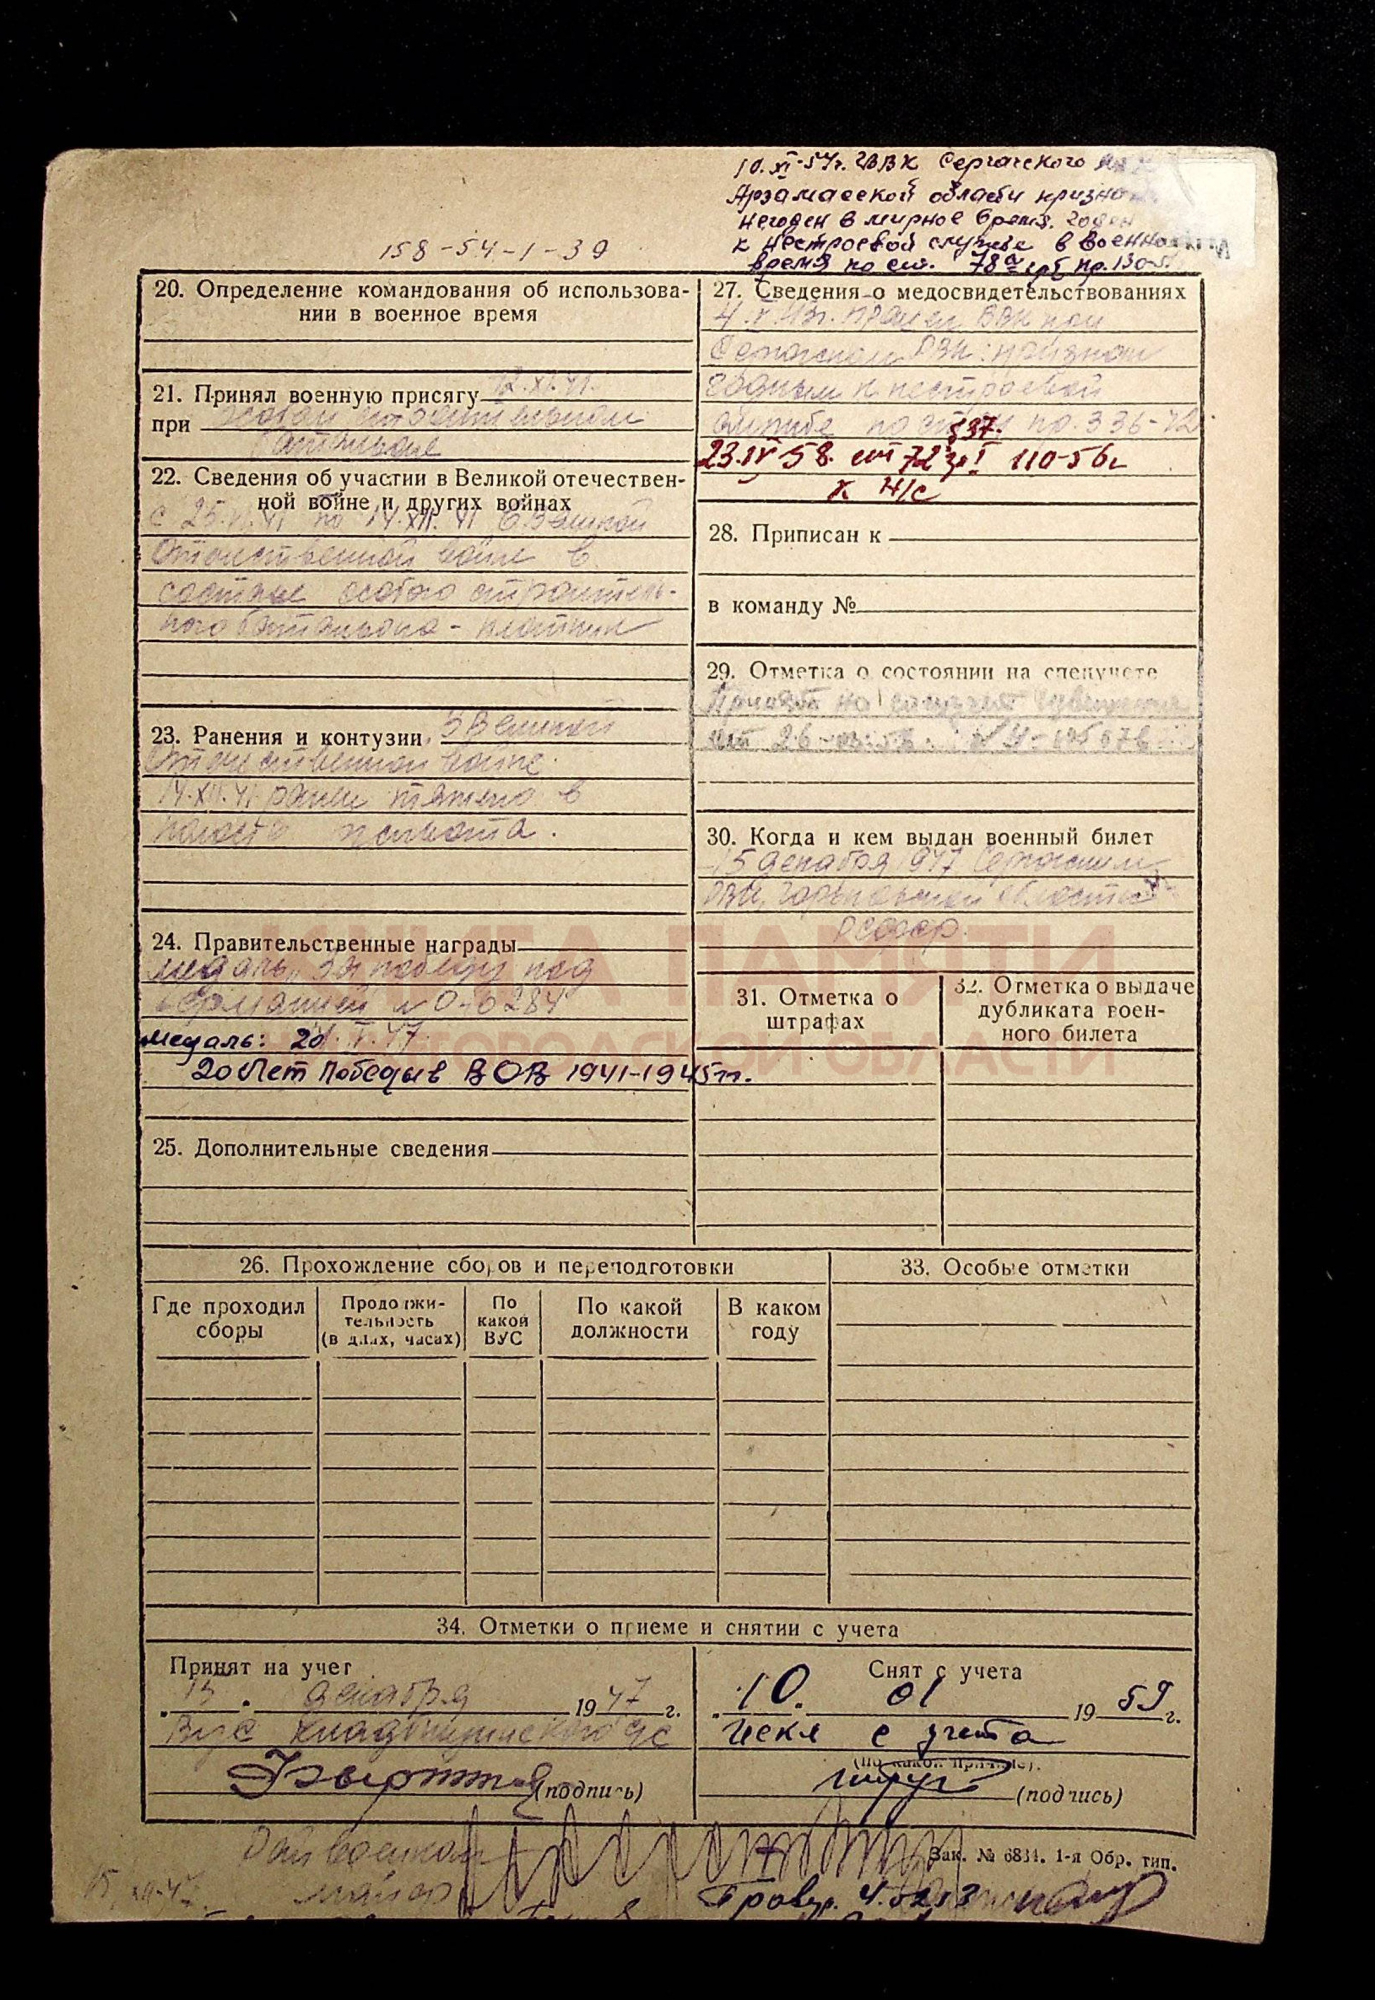 10.XI-54г. ГВВК Сергачского
Арзамасской области призна
негоден в мирное время. Годен
к нестроевой службе в военное
время по ст. 78а гр пр. 130-5
158-54-1-39
20. Определение командования об использова-
нии в военное время
21. Принял военную присягу 12.XI.41.
при особом строительном
батальоне
22. Сведения об участии в Великой отечествен-
ной войне и других войнах
с 25. по 14.XII.41 в Великой
Отечественной войне в
составе особого строитель-
ного батальона - плотник
23. Ранения и контузии. В Великой
Отечественной войне
14.XII.41 ранен тяжело в
полость живота.
24. Правительственные награды
медаль „За победу под
Германией № 0-0284
Медаль: 20 V.47
20 Лет Победы в ВОВ 1941-1945гг.
25. Дополнительные сведения
26. Прохождение сборов и переподготовки
Где проходил
сборы
Продолжи-
тельность
(в днях, часах)
По
какой
ВУС
По какой
должности
В каком
году
27. Сведения о медосвидетельствованиях
4.X.43г. ВВК при
Сергачском РВК: признан
годным к нестроевой
службе по ст. 37. пр. 336-42
23.IV 58. ст 72 гр I 110-56г
к Н/С
28. Приписан к
в команду №
29. Отметка о состоянии на спецучете
Принят на спецучет
от 26
30. Когда и кем выдан военный билет
15 декабря 1947 Сергачским
РВК, Горьковской области
РСФСР.
31. Отметка о
штрафах
32. Отметка о выдаче
дубликата воен-
ного билета
КНИГА ПАМЯТИ
НИЖЕГОРОДСКОЙ ОБЛАСТИ
33. Особые отметки
34. Отметки о приеме и снятии с учета
Принят на учет
15 декабря 1947 г.
ВУС Кладбищенского с/с
(подпись)
Снят с учета
10. 01 1959 г.
искл с учета
(по какой причине).
(подпись)
Райвоенком
майор
15.XII-47.
Зак. № 6834. 1-я Обр. тип.
Провер. 4.